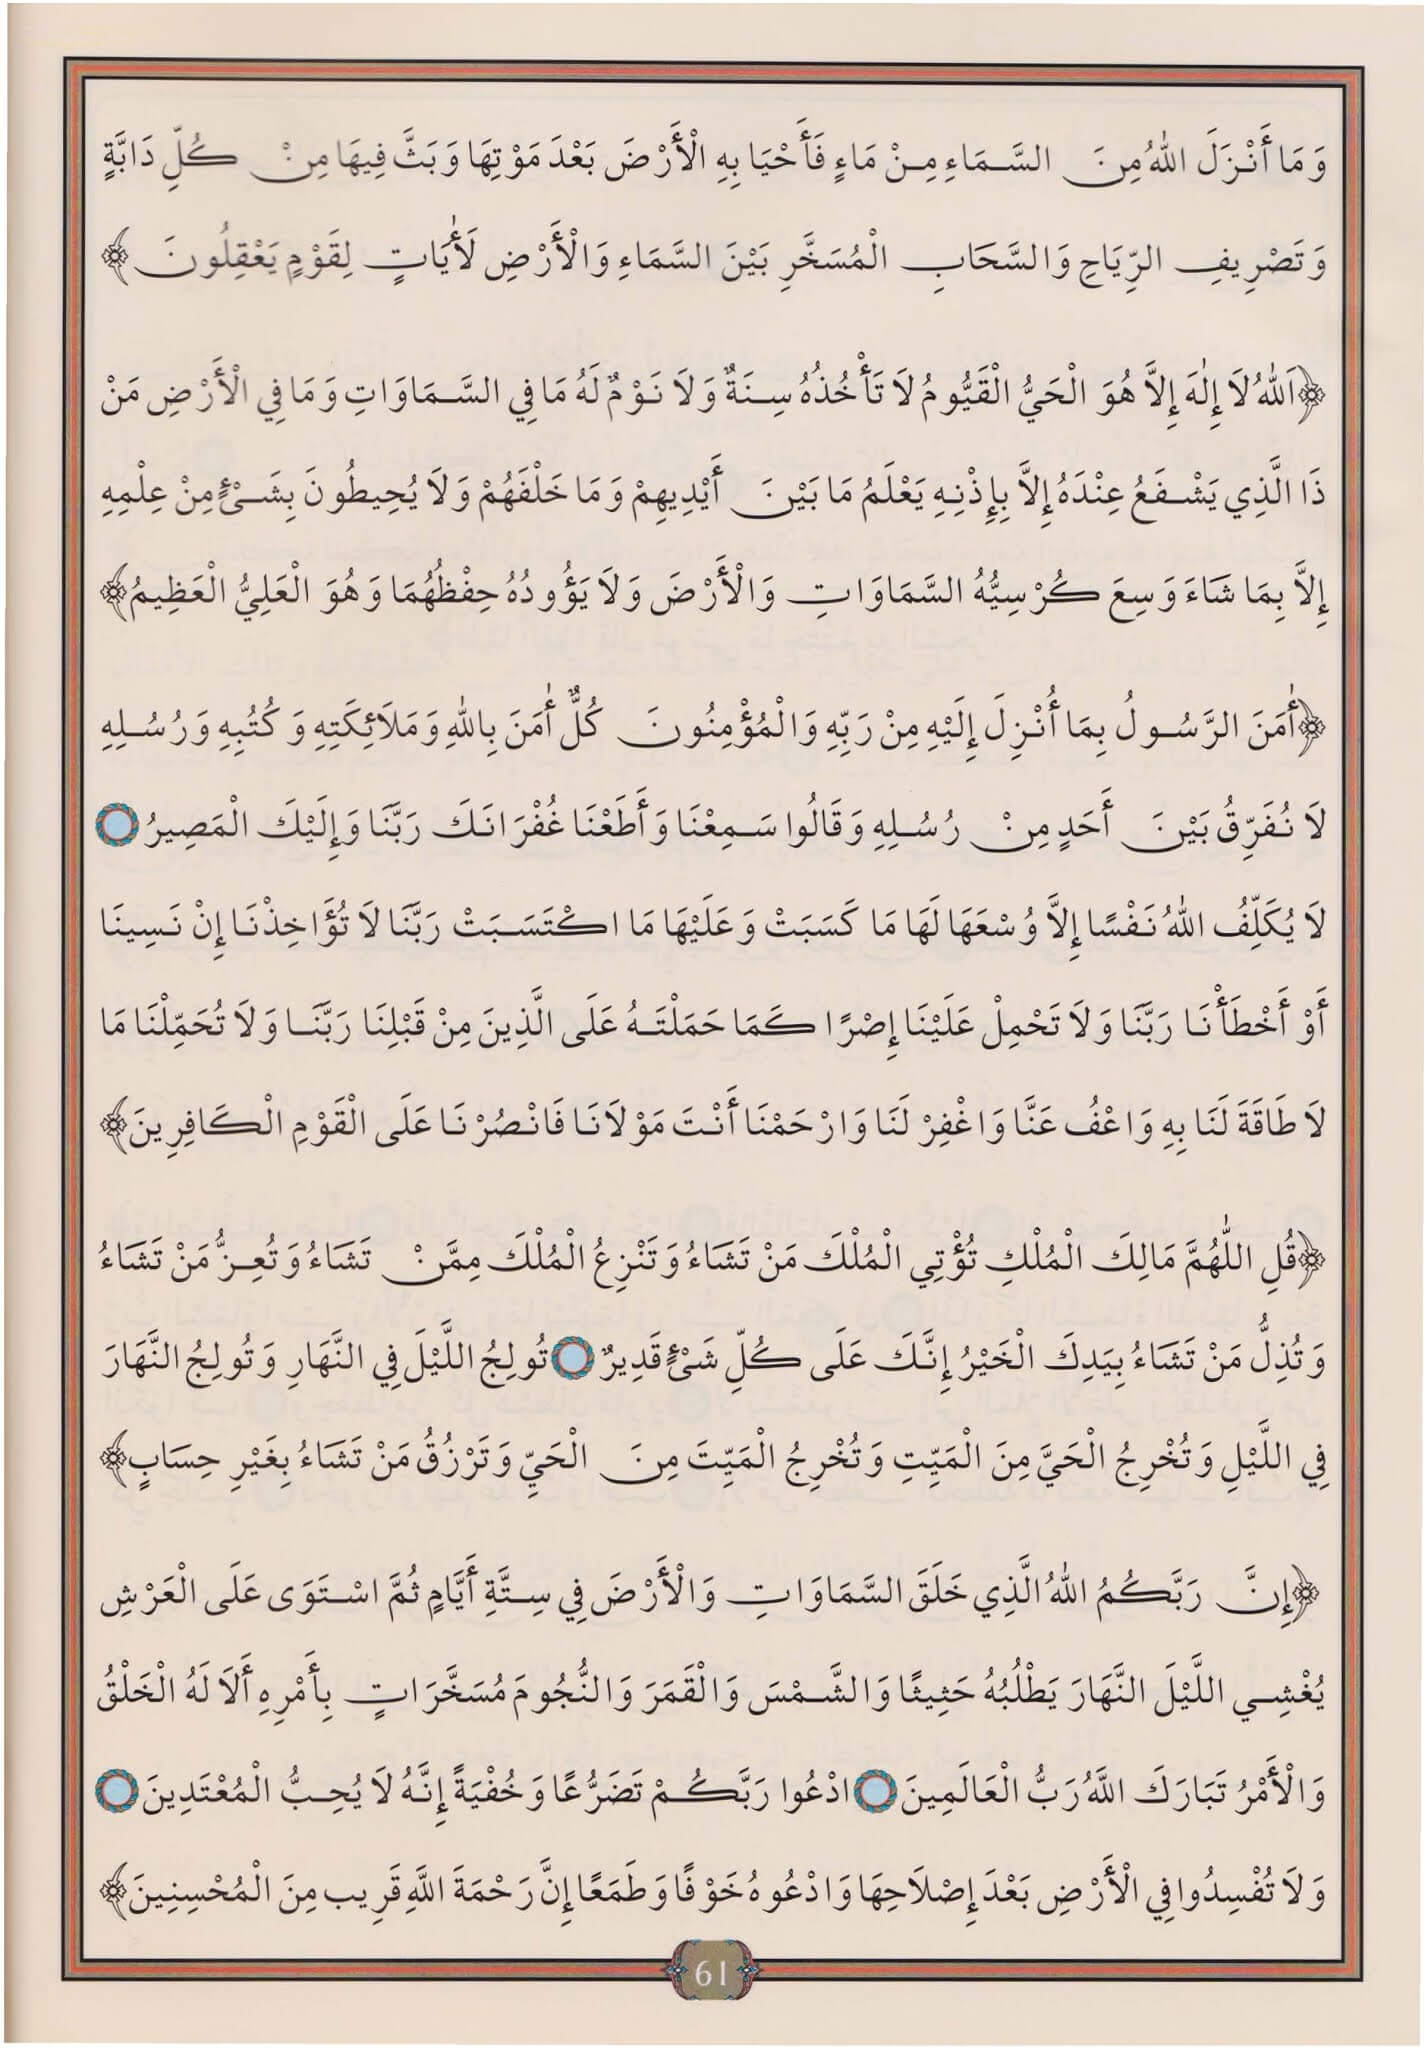 وَمَا أَنْزَلَ اللهُ مِنَ السَّمَاءِ مِنْ مَاءٍ فَأَحْيَا بِهِ الْأَرْضَ بَعْدَ مَوْتِهَا وَبَثَّ فِيهَا مِنْ كُلِّ دَابَّةٍ
وَتَصْرِيفِ الرِّيَاحِ وَالسَّحَابِ الْمُسَخَّرِ بَيْنَ السَّمَاءِ وَالْأَرْضِ لَأٰيَاتٍ لِقَوْمٍ يَعْقِلُونَ﴾
﴿اَللهُ لَا إِلٰهَ إِلَّا هُوَ الْحَيُّ الْقَيُّومُ لَا تَأْخُذُهُ سِنَةٌ وَلَا نَوْمٌ لَهُ مَا فِي السَّمَاوَاتِ وَمَا فِي الْأَرْضِ مَنْ
ذَا الَّذِي يَشْفَعُ عِنْدَهُ إِلَّا بِإِذْنِهِ يَعْلَمُ مَا بَيْنَ أَيْدِيهِمْ وَمَا خَلْفَهُمْ وَلَا يُحِيطُونَ بِشَىْءٍ مِنْ عِلْمِهِ
إِلَّا بِمَا شَاءَ وَسِعَ كُرْسِيُّهُ السَّمَاوَاتِ وَالْأَرْضَ وَلَا يَؤُودُهُ حِفْظُهُمَا وَهُوَ الْعَلِيُّ الْعَظِيمُ﴾
﴿أٰمَنَ الرَّسُولُ بِمَا أُنْزِلَ إِلَيْهِ مِنْ رَبِّهِ وَالْمُؤْمِنُونَ كُلٌّ أٰمَنَ بِاللهِ وَمَلَائِكَتِهِ وَكُتُبِهِ وَرُسُلِهِ
لَا نُفَرِّقُ بَيْنَ أَحَدٍ مِنْ رُسُلِهِ وَقَالُوا سَمِعْنَا وَأَطَعْنَا غُفْرَانَكَ رَبَّنَا وَإِلَيْكَ الْمَصِيرُ
لَا يُكَلِّفُ اللهُ نَفْسًا إِلَّا وُسْعَهَا لَهَا مَا كَسَبَتْ وَعَلَيْهَا مَا اكْتَسَبَتْ رَبَّنَا لَا تُؤَاخِذْنَا إِنْ نَسِينَا
أَوْ أَخْطَأْنَا رَبَّنَا وَلَا تَحْمِلْ عَلَيْنَا إِصْرًا كَمَا حَمَلْتَهُ عَلَى الَّذِينَ مِنْ قَبْلِنَا رَبَّنَا وَلَا تُحَمِّلْنَا مَا
لَا طَاقَةَ لَنَا بِهِ وَاعْفُ عَنَّا وَاغْفِرْ لَنَا وَارْحَمْنَا أَنْتَ مَوْلَانَا فَانْصُرْنَا عَلَى الْقَوْمِ الْكَافِرِينَ﴾
﴿قُلِ اللّٰهُمَّ مَالِكَ الْمُلْكِ تُؤْتِي الْمُلْكَ مَنْ تَشَاءُ وَتَنْزِعُ الْمُلْكَ مِمَّنْ تَشَاءُ وَتُعِزُّ مَنْ تَشَاءُ
وَتُذِلُّ مَنْ تَشَاءُ بِيَدِكَ الْخَيْرُ إِنَّكَ عَلَى كُلِّ شَىْءٍ قَدِيرٌ تُولِجُ اللَّيْلَ فِي النَّهَارِ وَتُولِجُ النَّهَارَ
فِي اللَّيْلِ وَتُخْرِجُ الْحَيَّ مِنَ الْمَيِّتِ وَتُخْرِجُ الْمَيِّتَ مِنَ الْحَيِّ وَتَرْزُقُ مَنْ تَشَاءُ بِغَيْرِ حِسَابٍ﴾
﴿إِنَّ رَبَّكُمُ اللهُ الَّذِي خَلَقَ السَّمَاوَاتِ وَالْأَرْضَ فِي سِتَّةِ أَيَّامٍ ثُمَّ اسْتَوَى عَلَى الْعَرْشِ
يُغْشِي اللَّيْلَ النَّهَارَ يَطْلُبُهُ حَثِيثًا وَالشَّمْسَ وَالْقَمَرَ وَالنُّجُومَ مُسَخَّرَاتٍ بِأَمْرِهِ أَلَا لَهُ الْخَلْقُ
وَالْأَمْرُ تَبَارَكَ اللَّهُ رَبُّ الْعَالَمِينَ ادْعُوا رَبَّكُمْ تَضَرُّعًا وَخُفْيَةً إِنَّهُ لَا يُحِبُّ الْمُعْتَدِينَ
وَلَا تُفْسِدُوا فِي الْأَرْضِ بَعْدَ إِصْلَاحِهَا وَادْعُوهُ خَوْفًا وَطَمَعًا إِنَّ رَحْمَةَ اللَّهِ قَرِيب مِنَ الْمُحْسِنِينَ﴾
61